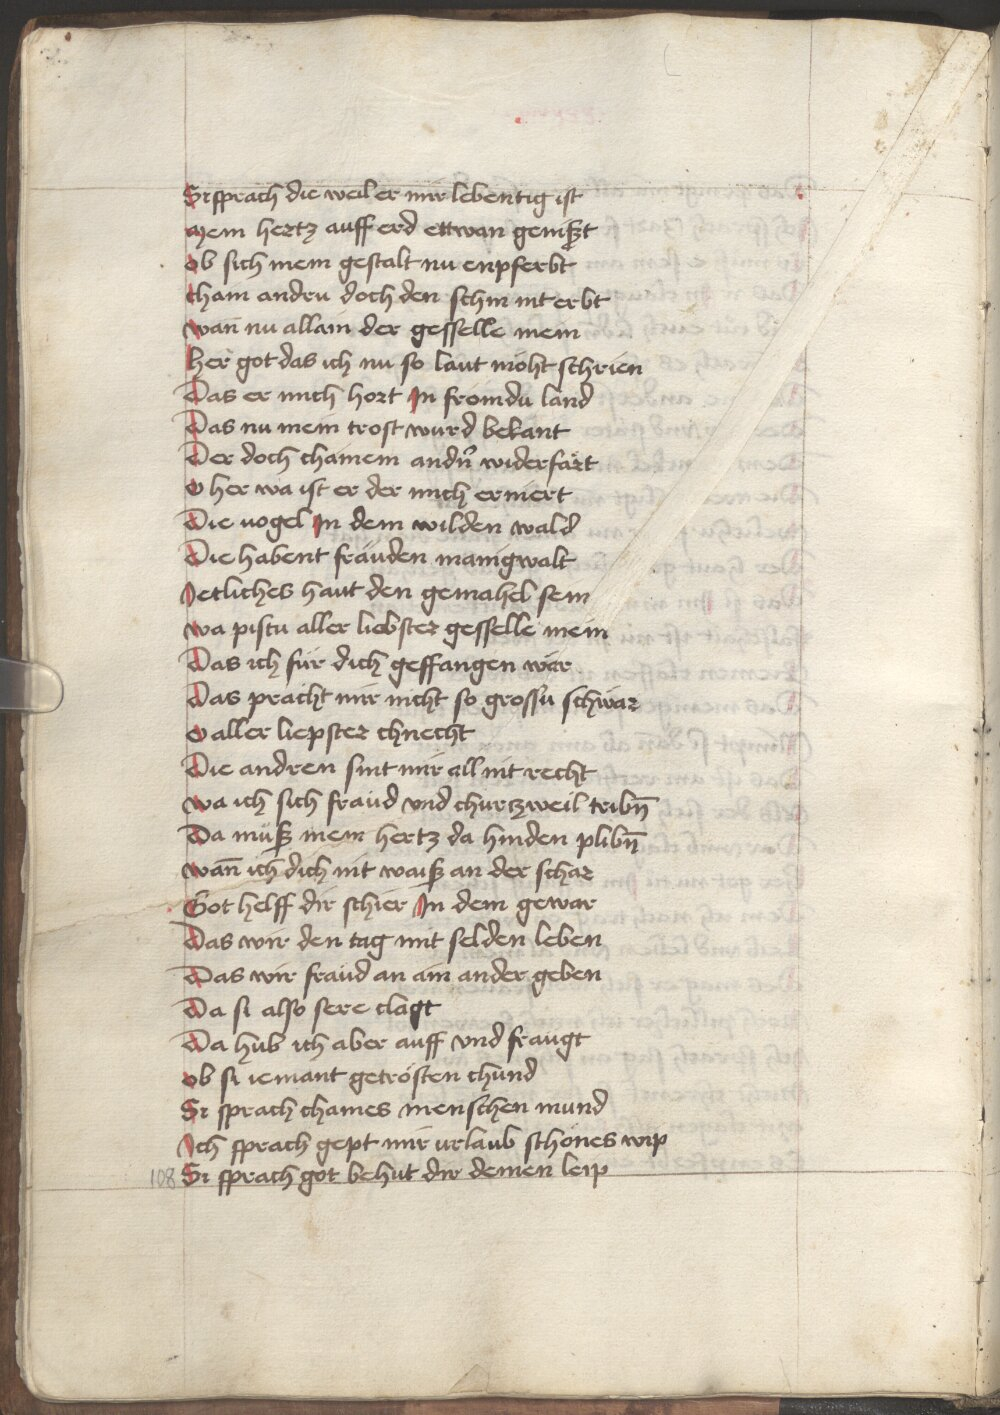 Si sprach die weil er mir lebentig ist
Mein hertz auff erd ettwan genißt
ob sich mein gestalt nu enpferbt
cham andru doch den schin nit erbt
wan̄ nu allain der gesselle mein
her got das ich nu so laut möht schrien
Das er mich hort In froͤmdu land
Das nu mein trost wurd bekant
Der doch chainem andn̄ widerfärt
O her wa ist er der mich ernert
Die uogel In dem wilden wald
Die habent fräuden manigwalt
Ietliches haut den gemahel sein
wa pistu aller liebster gesselle mein
Das ich für dich geffangen wär
Das pracht mir nicht so grossü schwär
O aller liepster chnecht
Die andren sint mir all nit recht
wa ich sich fräud vnd churtzweil tribn̄
Da müß mein hertz da hinden plibn̄
wan̄ ich dich nit waiß an der schar
Got helff dir schier In dem gewar
Das wir den tag mit selden leben
Das wir fräud an ain ander geben
Da si also sere clagt
Da hüb ich aber auff vnd fraugt
ob si iemant getrösten chund
Si sprach chaines menschen mund
Ich sprach gept mir urlaub schönes wip
108 Si sprach got behut dir deinen leip